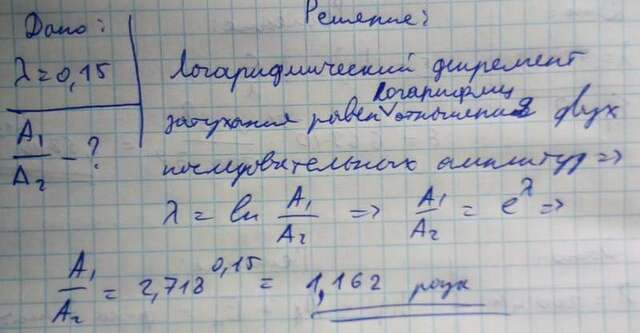 Дано:
λ=0,15
A₁/A₂ - ?
Решение:
Логарифмический декремент
логарифму
затухания равен отношения двух
последовательных амплитуд =>
λ = ln A₁/A₂ => A₁/A₂ = e^λ =>
A₁/A₂ = 2,718^0,15 = 1,162